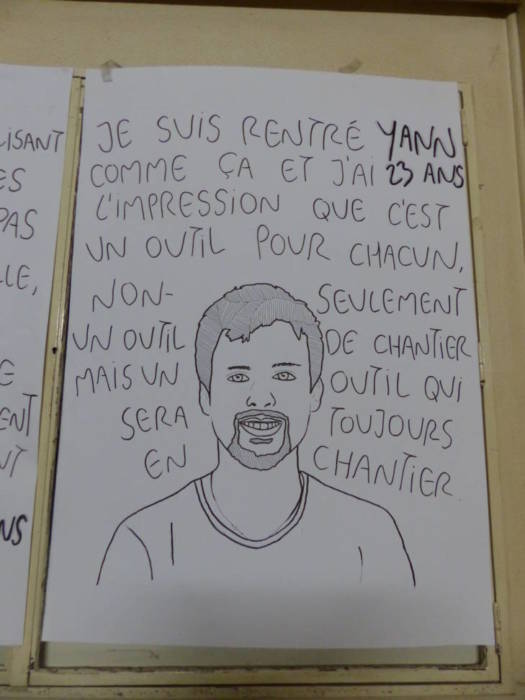 LISANT
ES
PAS
LLE,
E
ENT
NT
NS
JE SUIS RENTRÉ YANN
COMME ÇA ET J'AI 23 ANS
L'IMPRESSION QUE C'EST
UN OUTIL POUR CHACUN,
NON- SEULEMENT
UN OUTIL DE CHANTIER
MAIS UN OUTIL QUI
SERA TOUJOURS
EN CHANTIER